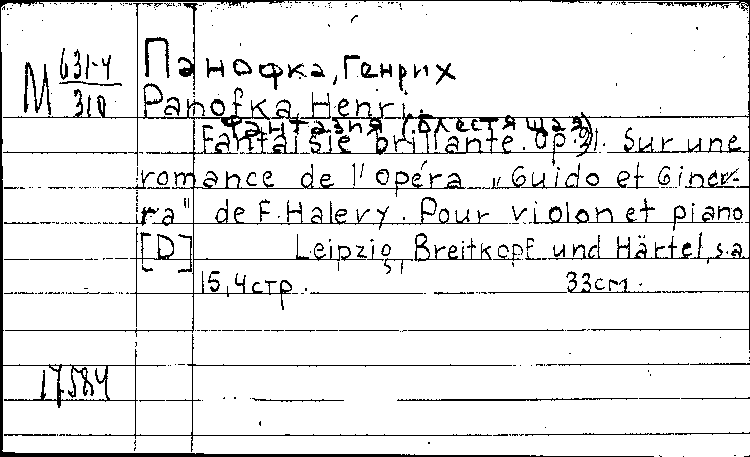 М 631-4/310
Панофка, Генрих
Panofka, Henri.
Фантазия (блестящая)
Fantaisie brillante. Op. 31. Sur une
romance de l'opéra „Guido et Ginev-
ra" de F. Halevy. Pour violon et piano
[D] Leipzig, Breitkopf und Härtel, s.a.
15, 4 стр. 33 см.
17584